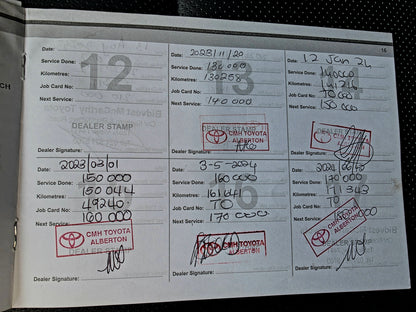 16
Date:
Service Done:
Kilometres:
Job Card No:
Next Service:
12
DEALER STAMP
Dealer Signature:
Date: 2023/11/20
Service Done: 130 000
Kilometres: 130258
Job Card No:
Next Service: 140 000
13
CMH TOYOTA
ALBERTON
Dealer Signature:
Date: 12 Jan 24
Service Done:
Kilometres:
Job Card No:
Next Service: 150 000
CMH TOYOTA
ALBERTON
Dealer Signature:
Date: 2023/03/01
Service Done: 150 000
Kilometres: 150 044
Job Card No: 49240
Next Service: 160 000
CMH TOYOTA
ALBERTON
Dealer Signature:
Date: 3-5-2024
Service Done: 160 000
Kilometres: 161641
Job Card No: TO
Next Service: 170 000
CMH TOYOTA
ALBERTON
Dealer Signature:
Date:
Service Done: 170 000
Kilometres: 171343
Job Card No: TO
Next Service:
CMH TOYOTA
ALBERTON
Dealer Signature: